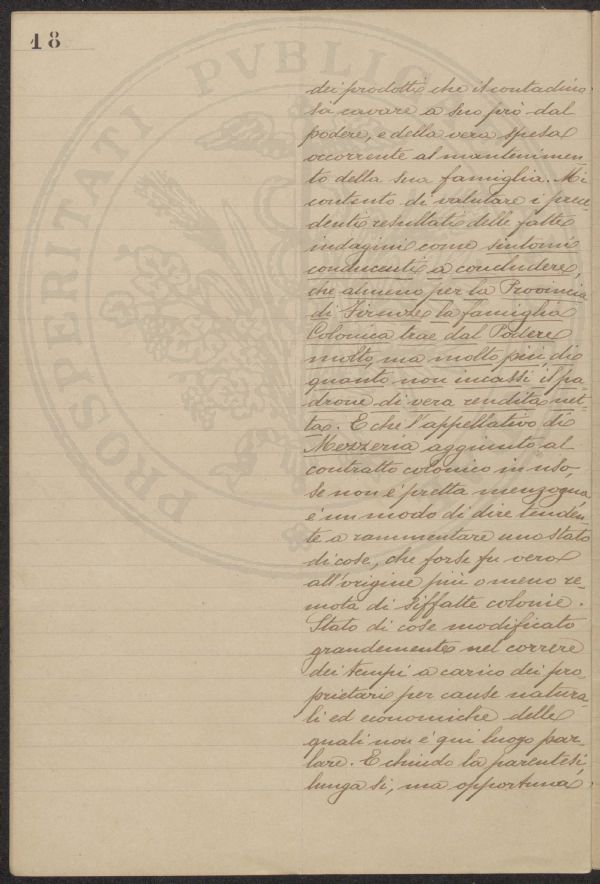 18
PROSPERITATI PVBLIC
dei prodotti che il contadino
sa cavare a suo prò dal
podere, e della vera spesa
occorrente al mantenimen-
to della sua famiglia. Mi
contento di valutare i prece-
denti resultati delle fatte
indagini come sintomi
conducenti a concludere,
che almeno per la Provincia
di Firenze la famiglia
Colonica trae dal Podere
molto, ma molto più, di
quanto non incassi il pa-
drone di vera rendita net-
ta. E che l'appellativo di
Mezzeria aggiunto al
contratto colonico in uso,
se non è pretta menzogna
è un modo di dire tenden-
te a rammentare uno stato
di cose, che forse fu vero
all'origine più o meno re-
mota di siffatte colonie.
Stato di cose modificato
grandemente nel correre
dei tempi a carico dei pro-
prietari per cause natura-
li ed economiche delle
quali non è qui luogo par-
lare. E chiudo la parentesi,
lunga sì, ma opportuna